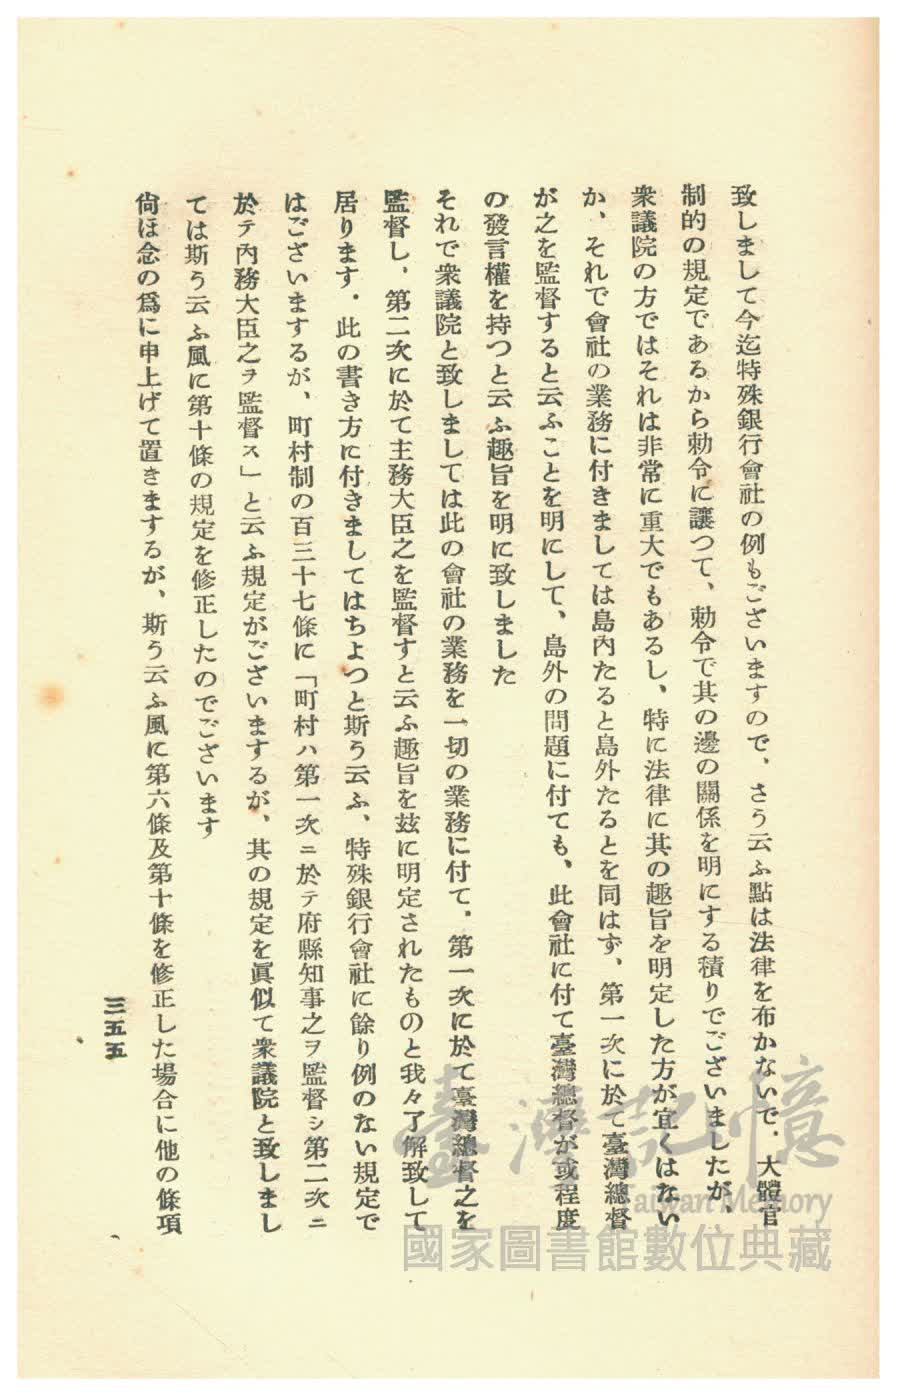 致しまして今迄特殊銀行會社の例もございますので、さう云ふ點は法律を布かないで、大體官
制的の規定であるから勅令に讓つて、勅令で其の邊の關係を明にする積りでございましたが、
衆議院の方ではそれは非常に重大でもあるし、特に法律に其の趣旨を明定した方が宜くはない
か、それで會社の業務に付きましては島內たると島外たるとを同はず、第一次に於て臺灣總督
が之を監督すると云ふことを明にして、島外の問題に付ても、此會社に付て臺灣總督が或程度
の發言權を持つと云ふ趣旨を明に致しました
それで衆議院と致しましては此の會社の業務を一切の業務に付て、第一次に於て臺灣總督之を
監督し、第二次に於て主務大臣之を監督すと云ふ趣旨を玆に明定されたものと我々了解致して
居ります、此の書き方に付きましてはちよつと斯う云ふ、特殊銀行會社に餘り例のない規定で
はございまするが、町村制の百三十七條に「町村ハ第一次ニ於テ府縣知事之ヲ監督シ第二次ニ
於テ內務大臣之ヲ監督ス」と云ふ規定がございまするが、其の規定を眞似て衆議院と致しまし
ては斯う云ふ風に第十條の規定を修正したのでございます
尙ほ念の爲に申上げて置きまするが、斯う云ふ風に第六條及第十條を修正した場合に他の條項
三五五
臺灣記憶
Taiwan Memory
國家圖書館數位典藏